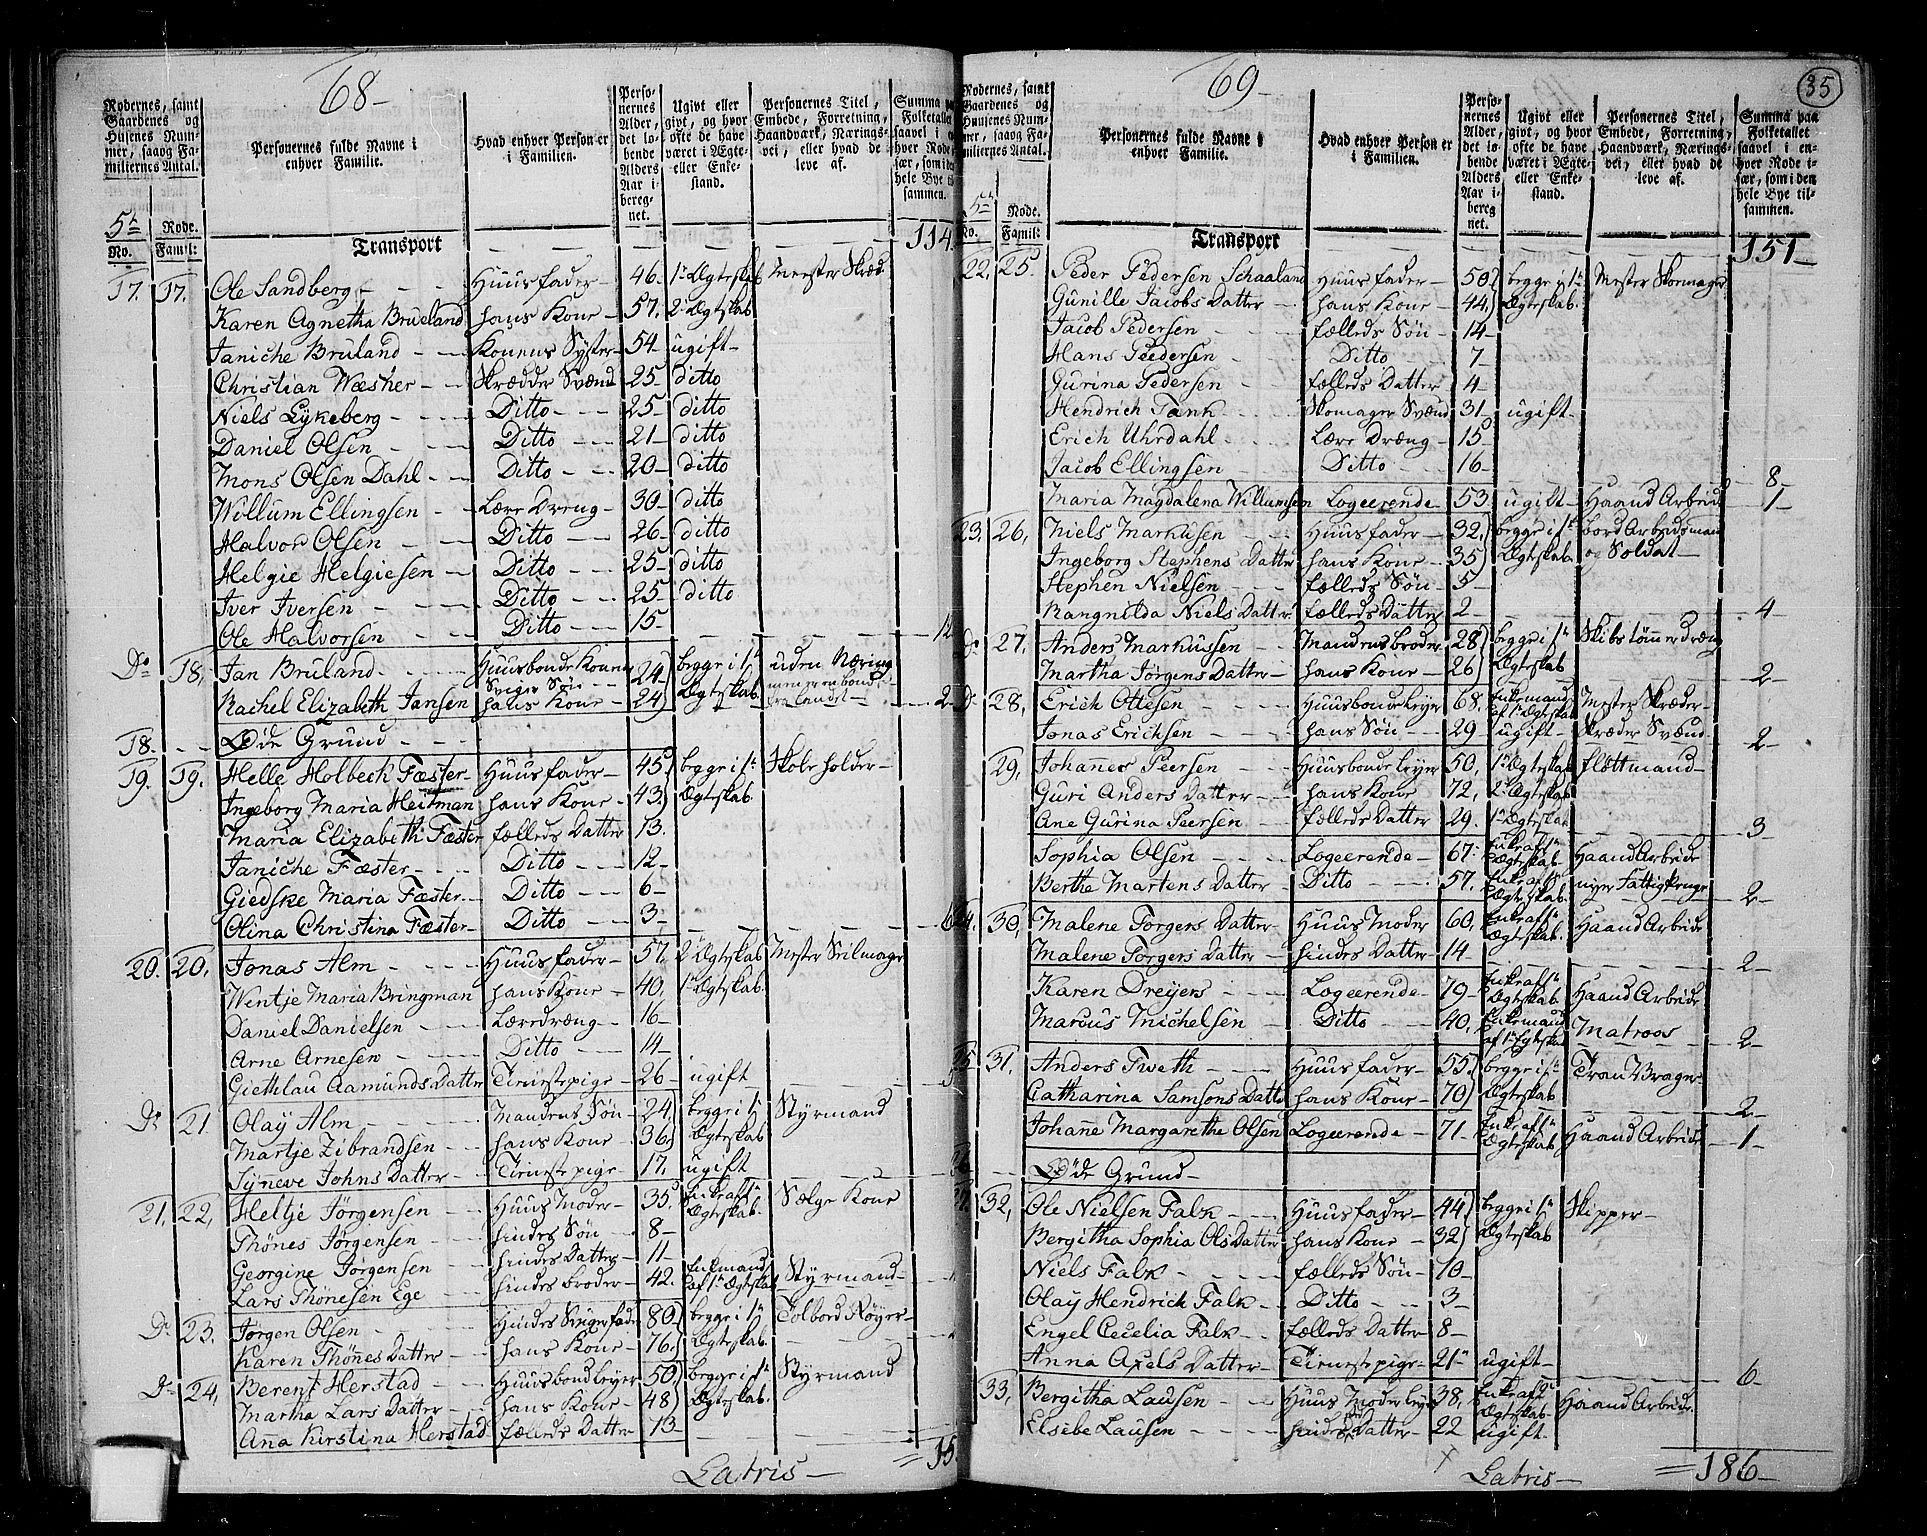 68-
Rodernes, samt Gaardenes og Husenes Nummer, saaog Familiernes Antal.
Personernes fulde Navne i enhver Familie.
Hvad enhver Person er i Familien.
Personernes Alder, det løbende Alders Aar iberegnet.
Ugivt eller givt, og hvor ofte de have været i Ægte- eller Enkestand.
Personernes Titel, Embede, Forretning, Haandværk, Næringsvei, eller hvad de leve af.
5te Rode.
No. Famil:
Transport 114
17. 17. Ole Sandberg Huusfader 46 1te Ægteskab Mester Skræd
Karen Agnetha Brueland hans Kone 57. 2det Ægtskab
Janiche Bruland Konens Syster 54 ugift
Christian Wæsher Skrædder Svænd 25 ditto
Niels Lykeberg Ditto 25 ditto
Daniel Olsen Ditto 21 ditto
Mons Olsen Dahl Ditto 20 ditto
Willum Ellingsen Lære Dreng 30 ditto
Halvor Olsen Ditto 26 ditto
Helgie Helgiesen Ditto 25 ditto
Iver Iversen Ditto 25 ditto
Ole Halvorsen Ditto 15 12
Do 18. Jan Bruland Huusbonde Konens Sviger Søn 24 begge i 1te Ægteskab uden Næring
Rachel Elizabeth Jansen hans Kone 24 2
18. Øde Grund
19. 19. Helle Holbech Fæster Huusfader 45 begge i 1te Ægteskab Skoleholder
Ingeborg Maria Heitman hans Kone 43
Maria Elizabeth Fæster fælleds Datter 13.
Janiche Fæster Ditto 12
Giedske Maria Fæster Ditto 6
Olina Christina Fæster Ditto 3 6
20. 20. Jonas Alm Huusfader 57. 2det Ægteskab Mester Seilmager
Wentje Maria Bringman hans Kone 40. 1te Ægtskab.
Daniel Danielsen Læredræng 16
Arne Arnesen Ditto 14
Giethlau Aamunds Datter Tienestepige 26 ugift 5
Do 21 Olay Alm Mandens Søn 24. begge i 1te Ægteskab Styrmand
Martje Zibrandsen hans Kone 36
Syneve Johns Datter Tienestepige 17. ugift
21. 22. Heltje Jörgensen Huus Moder 35. Enke aft 1te Ægteskab. Sælge Kone
Thönes Jörgensen hindes Søn 8
Georgine Jörgensen hindes Datter 11
Lars Thönesen Ege hindes broder 42. Enkemand af 1te Ægteskab Styrmand
Do 23. Jörgen Olsen Hindes Svigerfader 80 begge i 1te Ægteskab Tolbord Røyer
Karen Thönes Datter hans Kone 76.
Do 24. Berent Herstad Huusbond leyer 50 begge i 1te Ægteskab. Styrmand
Martha Lars Datter hans Kone 48
Anna Kirstina Herstad fælleds Datter 13
Latris 15
69-
35
Rodernes, samt Gaardenes og Husenes Nummer, saaog Familiernes Antal.
Personernes fulde Navne i enhver Familie.
Hvad enhver Person er i Familien.
Personernes Alder, det løbende Alders Aar iberegnet.
Ugivt eller givt, og hvor ofte de have været i Ægte- eller Enkestand.
Personernes Titel, Embede, Forretning, Haandværk, Næringsvei, eller hvad de leve af.
Summa paa Folketallet saavel i enhver Rode især, som i den hele Bye tilsammen.
5te Rode.
No. Famil:
Transport 151
22. 25. Peder Pedersen Schaaland Huusfader 50 begge i 1te Ægteskab. Mester Skomager
Gunille Jacobs Datter hans Kone 44
Jacob Pedersen fælleds Søn 14
Hans Peedersen Ditto 7
Gurina Pedersen fælleds Datter 4
Hendrich Tank Skomager Svænd 31 ugift
Erich Uhrdahl Lære Dræng 15
Jacob Ellingsen Ditto 16 8
Maria Magdalena Willumsen Logeerende 53 ugift Haand Arbeid 1
23. 26. Niels Markusen Huusfader 32. begge i 1te Ægteskab bord Arbeidsmand og Soldat
Ingeborg Stephens Datter hans Kone 35
Stephen Nielsen fælleds Søn 5
Rangnilda Niels Datter fælleds Datter 2 4
Do 27. Anders Markussen Mandens broder 28 begge i 1te Ægteskab Skibstømmerdræng
Martha Jörgens Datter hans Kone 26 2
Do 28. Erich Ottesen Huusbonde leyer 68. Enkemand af 1te Ægteskab Mester Skræder
Jonas Erichsen hans Søn 29 ugift Skræder Svænd 2
29. Johannes Peersen Huusbonde leyer 50. 1te Ægteskab flottmand
Guri Anders Datter hans Kone 72. 2det Ægteskab
Ane Gurina Peersen fælleds Datter 29. 1te Ægteskab 3
Sophia Olsen Logeerende 67. Enke aft 1te Ægteskab Haand Arbeide
Berthe Martens Datter Ditto 57. Enke aft Ægteskab. nyer Fattigpenge 2
24. 30. Malene Torgers Datter Huus Moder 60. Enke aft 1te Ægteskab. Haand Arbeide
Malene Torgers Datter hindes Datter 14 2
Karen Dreyers Logeerende 79 Enke aft 1te Ægteskab Haand Arbeide
Marcus Michelsen Ditto 40. Enkemand af 1te Egteskab Matroos 2
25. 31. Anders Tweth Huusfader 55 begge i 1te Ægteskab Tran Brager
Catharina Samsons Datter hans Kone 70 2
Johanne Margarethe Olsen Logeerende 71 Enke aft 1te Ægteskab Haand Arbeide 1
26. Øde Grund
27. 32. Ole Nielsen Falk Huusfader 44 begge i 1te Ægteskab Skipper
Bergitha Sophia Ols Datter hans Kone 32
Niels Falk fælleds Søn 10
Olay Hendrich Falk Ditto 3
Engel Cecelia Falk fælleds Datter 8
Anna Axels Datter Tienestepige 21 ugift 6
33. Bergitha Lausen Huus Moder leyer 38. Enke aft 1te Ægteskab Haand Arbeide.
Elsebe Lausen hindes Datter 22 ugift
Latris 186